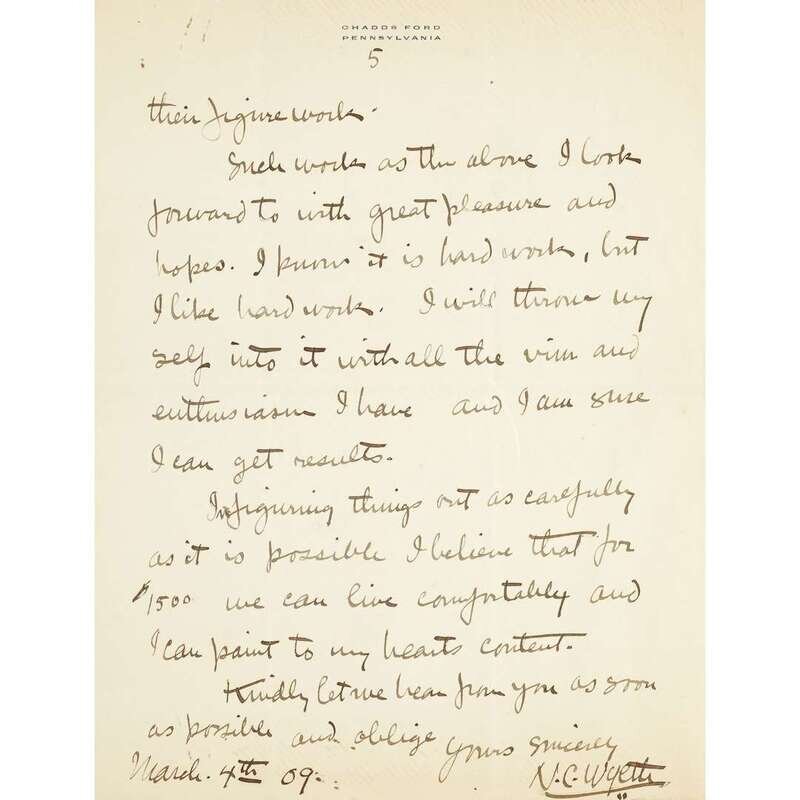 CHADDS FORD
PENNSYLVANIA
5
their figure work.
Such work as the above I look
forward to with great pleasure and
hopes. I know it is hard work, but
I like hard work. I will throw my
self into it with all the vim and
enthusiasm I have and I am sure
I can get results.
In figuring things out as carefully
as it is possible I believe that for
$1500 we can live comfortably and
I can paint to my hearts content.
Kindly let me hear from you as soon
as possible and oblige Yours Sincerely
March. 4th 09. N.C. Wyeth